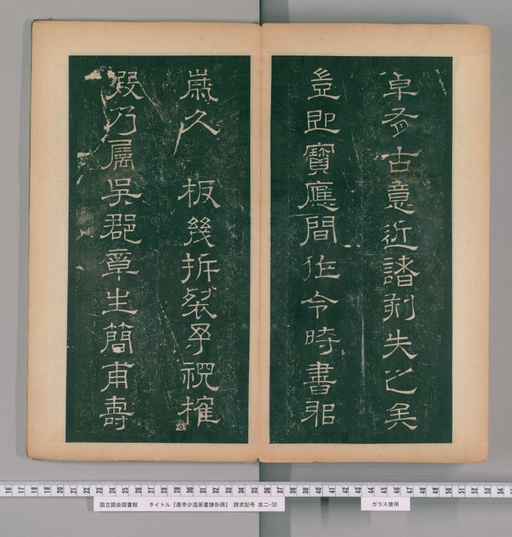 卓有古意近諸刻失之矣
豈即寶應間作令時書邪
歲久 板幾拆裂予視搉
暇乃屬吳郡章生簡甫壽
国立国会図書館 タイトル『唐李少温篆書謙卦碑』 請求記号 亥二-30
ガラス使用